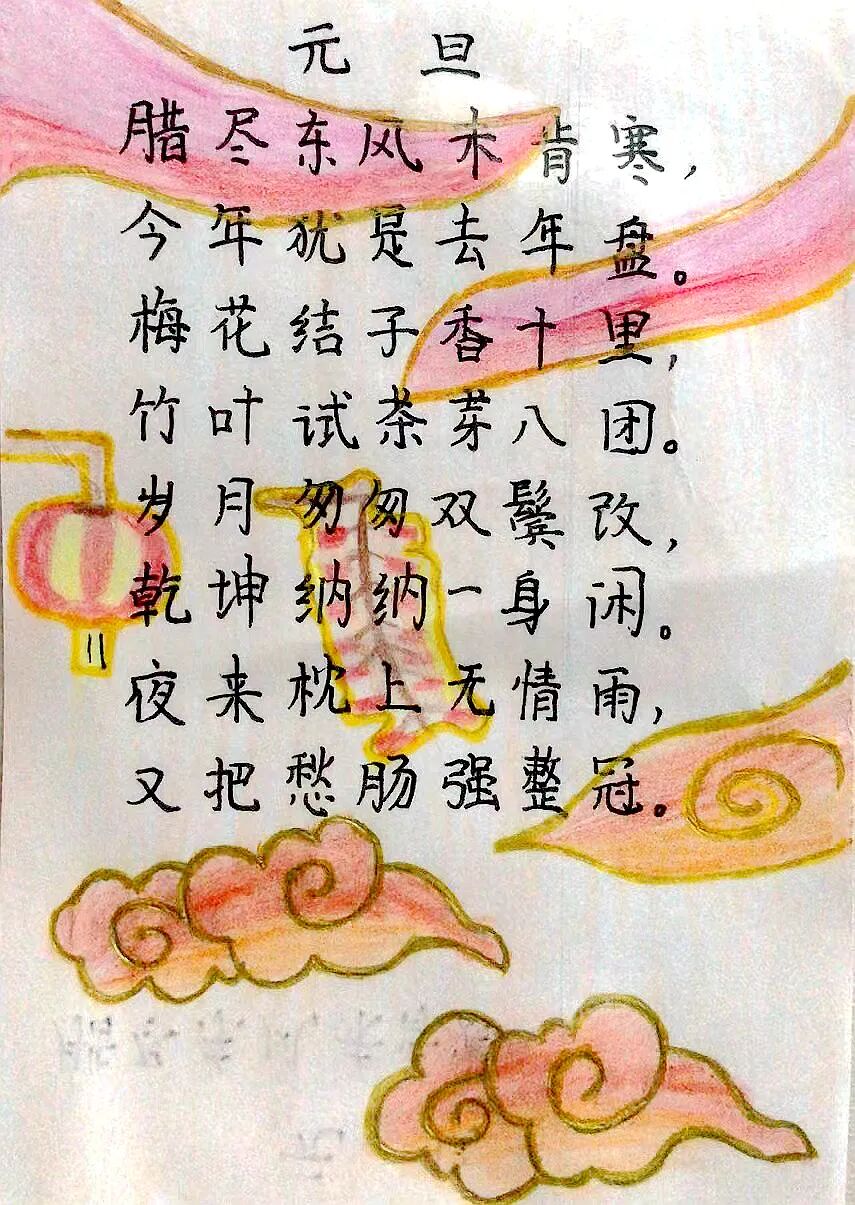 元旦
腊尽东风未肯寒，
今年犹是去年盘。
梅花结子香十里，
竹叶试茶芽八团。
岁月匆匆双鬓改，
乾坤纳纳一身闲。
夜来枕上无情雨，
又把愁肠强整冠。